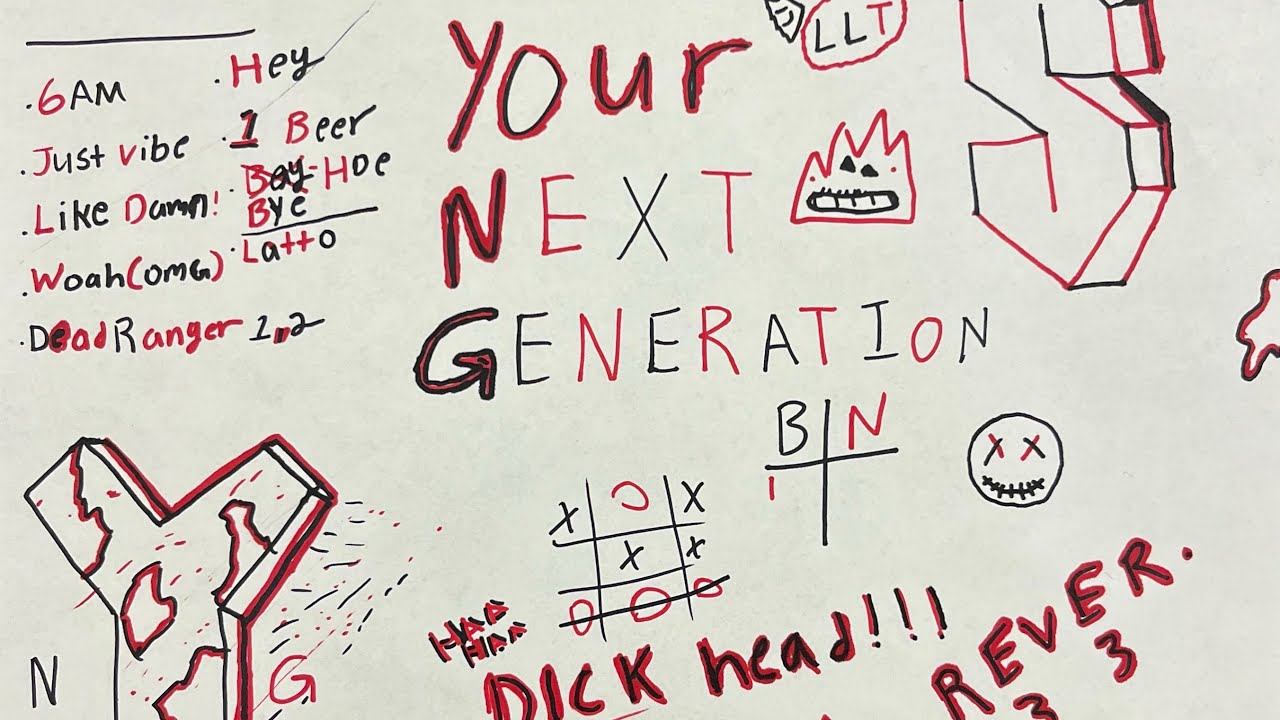 . 6AM
. Just vibe
. Like Damn!
. Woah(OMG)
. DeadRanger 1,2
. Hey
. 1 Beer
. Hoe
Bye
. Latto
Your
NEXT
GENERATION
LLT
B N
1
X O X
X X
O O O
HAA
HAA
DICK head!!!
REVER.
3 3
N G